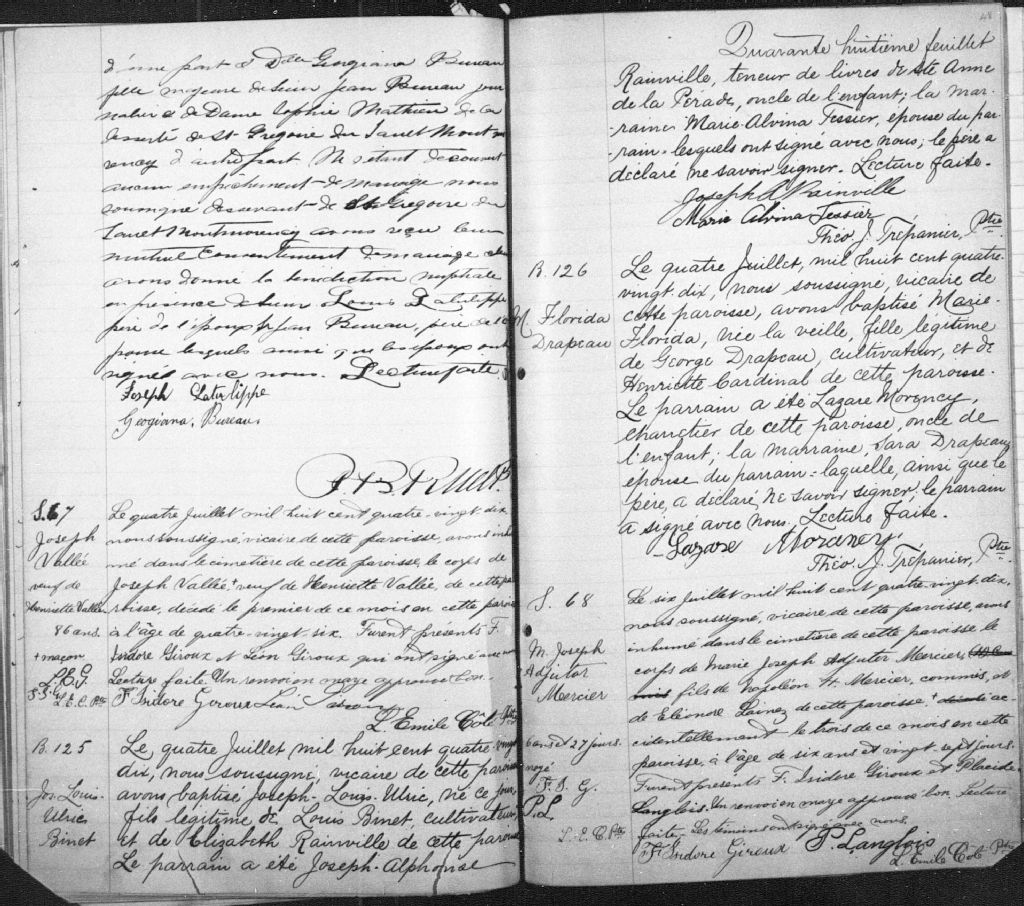 d'une part et Dlle Georgiana Bureau
fille majeure de Sieur Jean Bureau jour
nalier et de Dame Sophie Mathieu de la
desserte de St Grégoire du Sault Mont
rency d'autre part. Ne s'étant découvert
aucun empêchement de mariage nous
soussigné desservant de St Grégoire du
Sault Montmorency avons reçu leur
mutuel consentement de mariage et leur
avons donné la bénédiction nuptiale
en présence de Sieur Louis Latulippe
père de l'époux et Jean Bureau, père de l'é
pouse lesquels ainsi que les époux ont
signés avec nous. Lecture faite.
Joseph Latulippe
Georgiana Bureau
S. 67
Joseph
Vallée
veuf de
Henriette Vallée
86 ans.
+ maçon
L. G.
F. I. G.
L. E. C. Ptre
Le quatre Juillet mil huit cent quatre-vingt dix
nous soussigné, vicaire de cette paroisse, avons inhu
mé dans le cimetière de cette paroisse, le corps de
Joseph Vallée + veuf de Henriette Vallée, de cette pa
roisse, décédé le premier de ce mois en cette paroisse
à l'âge de quatre-vingt-six. Furent présents F.
Isidore Giroux et Léon Giroux qui ont signé avec nous
Lecture faite. Un renvoi en marge approuvé bon.
F. Isidore Giroux Léon Giroux
L. Emile Côté Ptre
B. 125
Jos. Louis-
Ulric
Binet
Le quatre Juillet mil huit cent quatre-vingt
dix, nous soussigné, vicaire de cette paroisse
avons baptisé Joseph-Louis-Ulric, né ce jour,
fils légitime de Louis Binet, cultivateur,
et de Elizabeth Rainville de cette paroisse
Le parrain a été Joseph-Alphonse
48
Quarante huitième feuillet
Rainville, teneur de livres de Ste Anne
de la Pérade, oncle de l'enfant; la mar-
raine Marie-Alvina Tessier, épouse du par-
rain-lesquels ont signé avec nous; le père a
déclaré ne savoir signer. Lecture faite.
Joseph A Rainville
Marie Alvina Tessier
Théo. J. Trépanier, Ptre
B. 126
M. Florida
Drapeau
Le quatre Juillet, mil huit cent quatre-
vingt-dix, nous soussigné, vicaire de
cette paroisse, avons baptisé Marie-
Florida, née la veille, fille légitime
de George Drapeau, cultivateur, et de
Henriette Cardinal de cette paroisse.
Le parrain a été Lazare Morency,
charretier de cette paroisse, oncle de
l'enfant; la marraine, Sara Drapeau,
épouse du parrain-laquelle, ainsi que le
père, a déclaré ne savoir signer; le parrain
a signé avec nous. Lecture faite.
Lazare Moraney
Théo. J. Trépanier, Ptre
S. 68
M. Joseph
Adjutor
Mercier
6 ans et 27 jours.
noyé
F. I. G.
P. L
L. E. C. Ptre
Le six Juillet mil huit cent quatre-vingt-dix,
nous soussigné, vicaire de cette paroisse, avons
inhumé dans le cimetière de cette paroisse, le
corps de Marie Joseph Adjutor Mercier,
fils de Napoléon H. Mercier, commis, et
de Eléonore Lainez de cette paroisse, + ac
cidentellement le trois de ce mois en cette
paroisse, à l'âge de six ans et vingt sept jours.
Furent présents F. Isidore Giroux et Placide
Langlois. Un renvoi en marge approuvé bon. Lecture
faite. Les témoins ont signé avec nous.
F. Isidore Giroux P. Langlois
L. Emile Côté Ptre